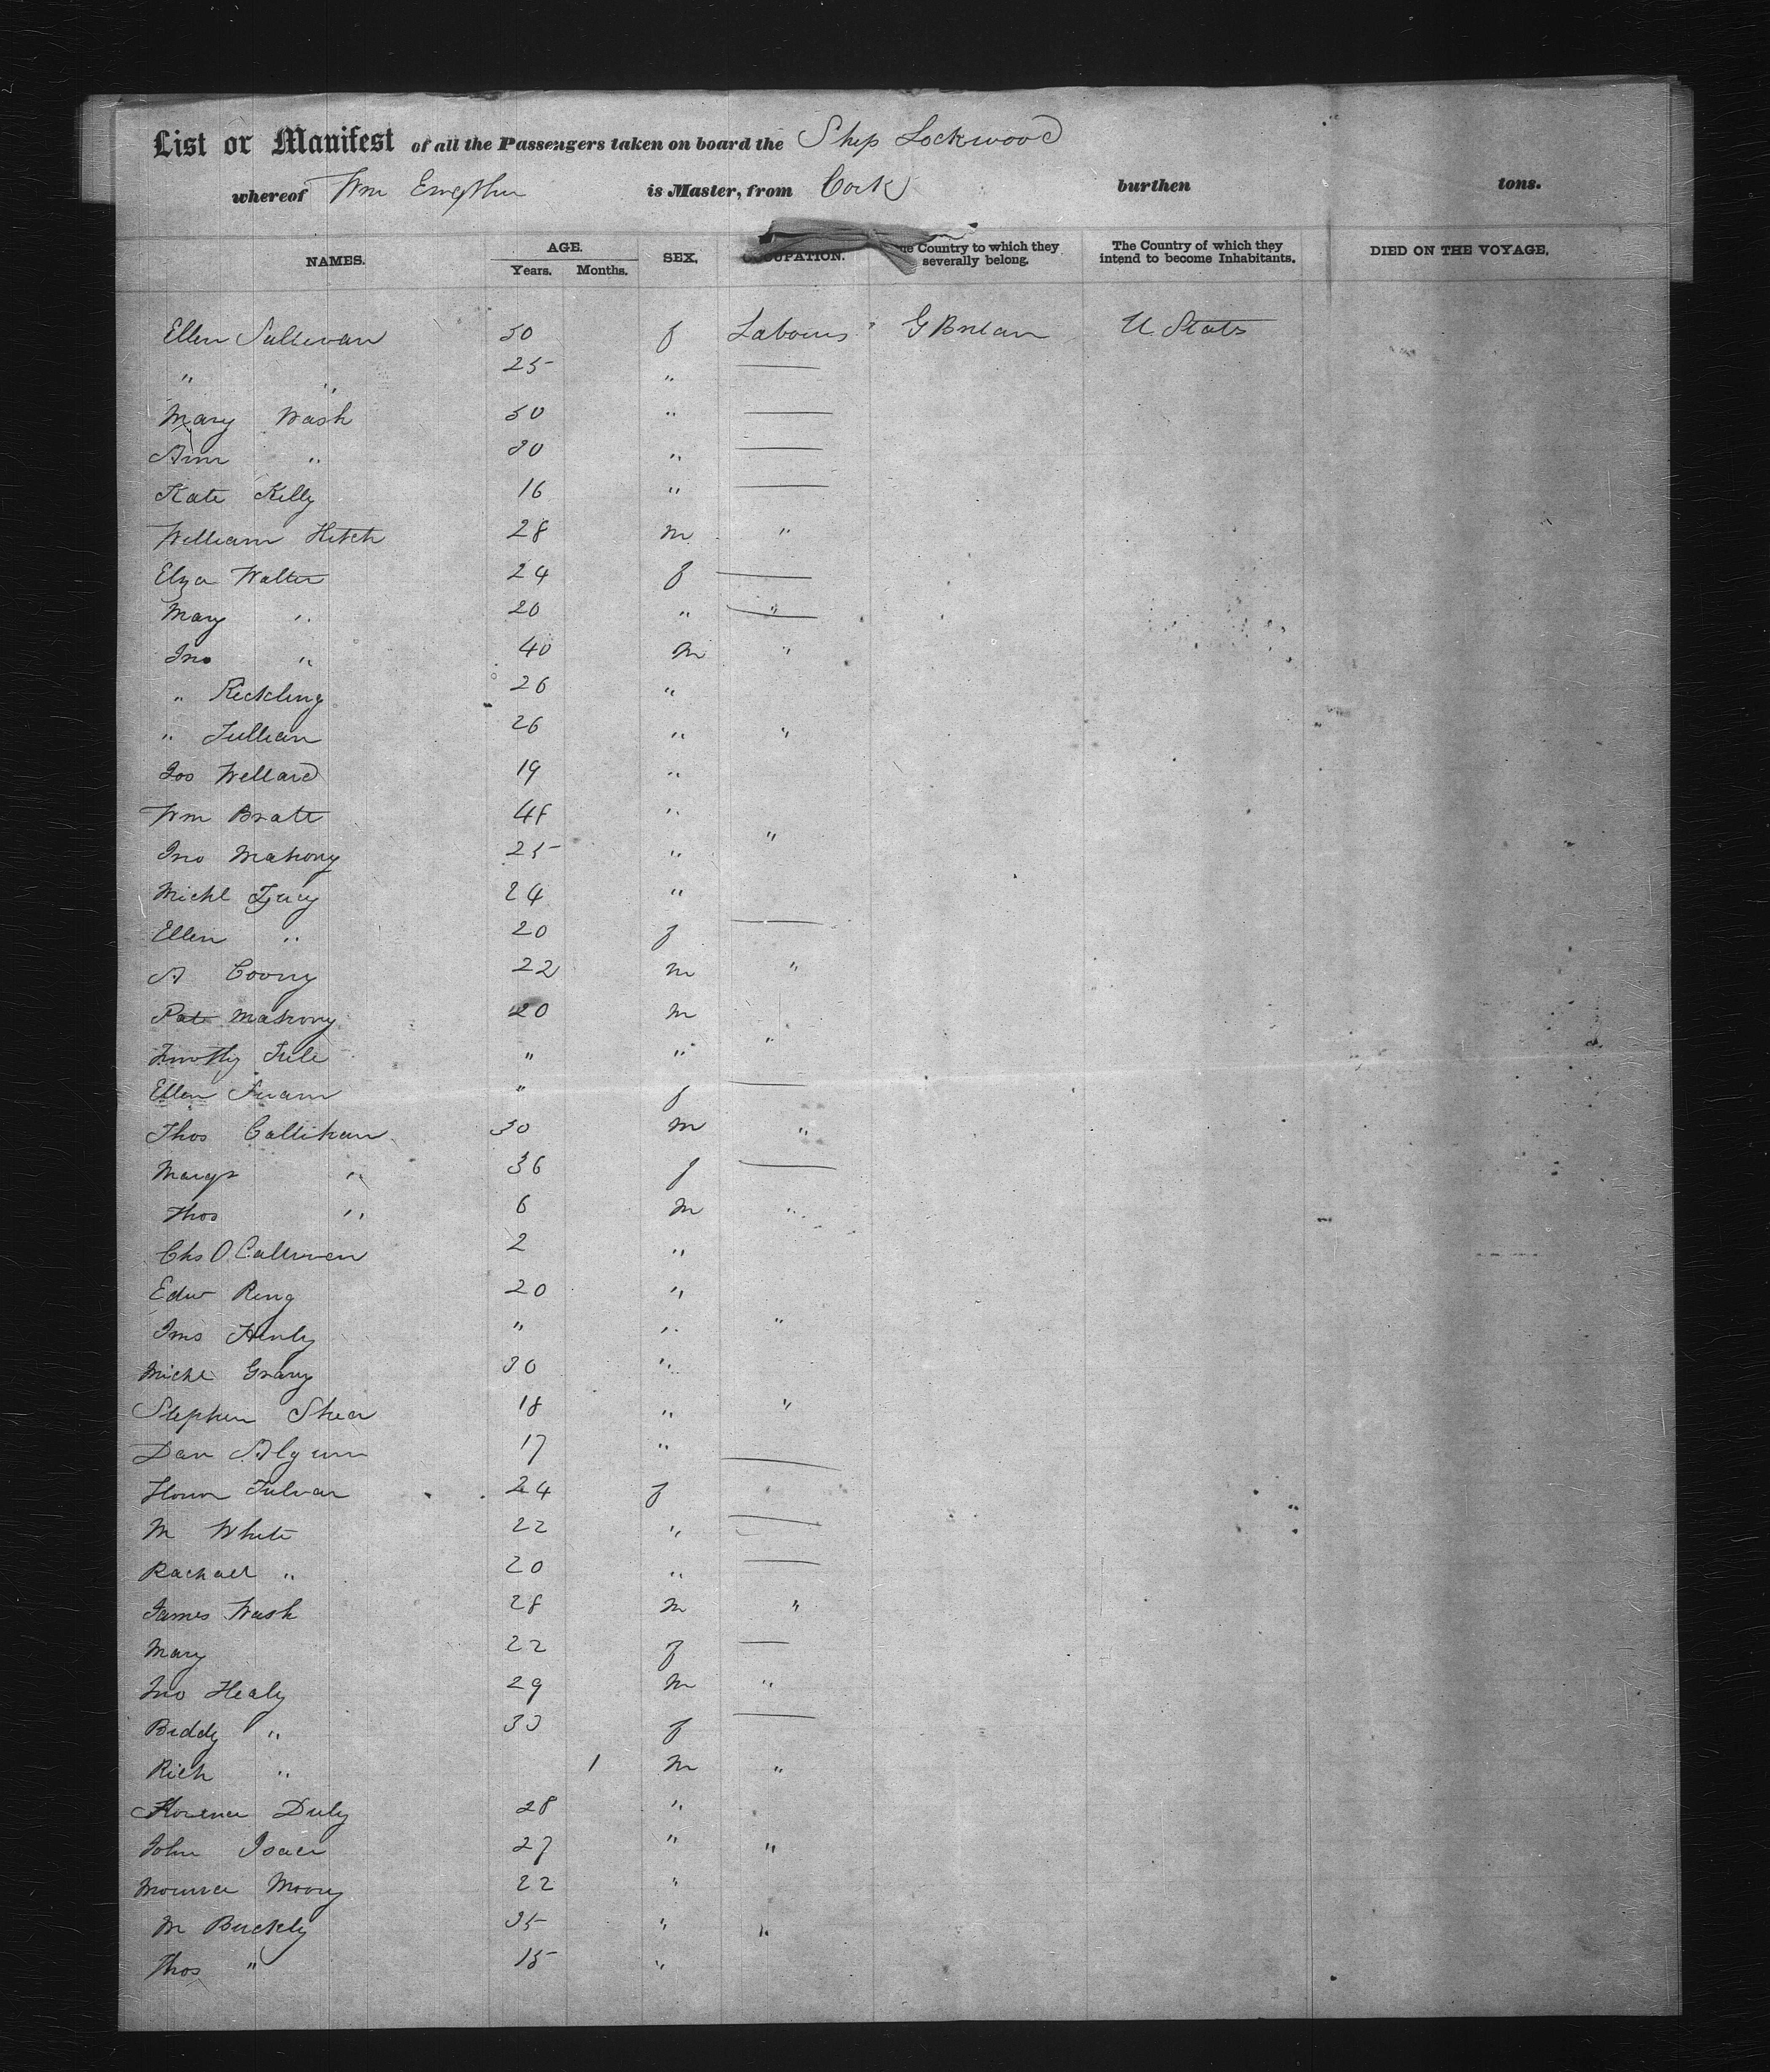 List or Manifest of all the Passengers taken on board the Ship Lockwood
whereof Wm is Master, from Cork burthen tons.
NAMES. AGE. Years. Months. SEX, OCCUPATION. The Country to which they severally belong. The Country of which they intend to become Inhabitants. DIED ON THE VOYAGE,
Ellen Sullivan 30 f G Britan U. States
" " 25 " —
Mary Wash 50 " —
Ann " 30 " —
Kate Kelly 16 " —
William Hitch 28 m "
Elza Walter 24 f —
Mary " 20 " "
Jno " 40 m "
" Reckling 26 "
" Jullian 26 " "
Jos Wellard 19 "
Wm Bratt "
Jno Mahony 25 " "
Michl 24 "
Ellen " 20 f —
A 22 m "
Pat Mahony 20 m
Timothy " " "
Ellen " f —
Thos Callihan 30 m "
Margt " 36 f —
Thos " 6 m "
Chs O. 2 "
Edw Ring 20 "
Jms Henly " " "
Michl 30 "
Stephen Shea 18 " "
Dan 17 "
24 f —
M White 22 " —
Rachael " 20 " —
James Wash 28 m "
Mary 22 f —
Jno Healy 29 m "
Biddy " 33 f —
Rich " 1 m "
Florence Duly 28 "
John Isaac 27 " "
22 "
M Buckly 35 " "
Thos " 15 "